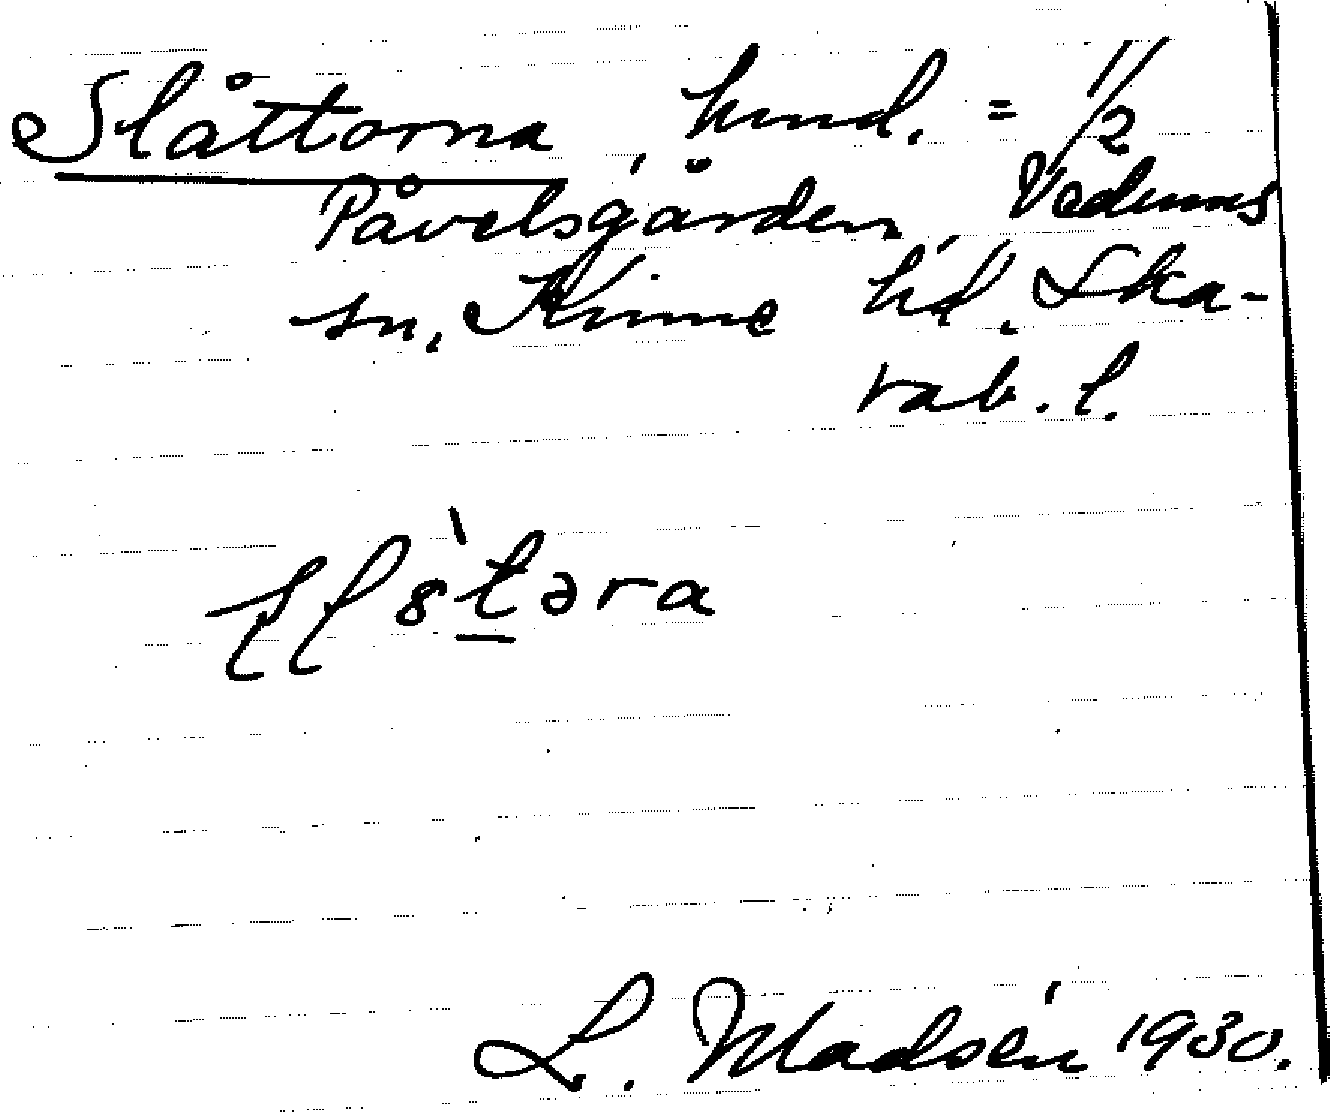 Slåttorna, hmd. = 1/2
Påvelsgården, Vedums
sn, Kinne hd. Ska-
rab. l.
L. Madsén 1930.